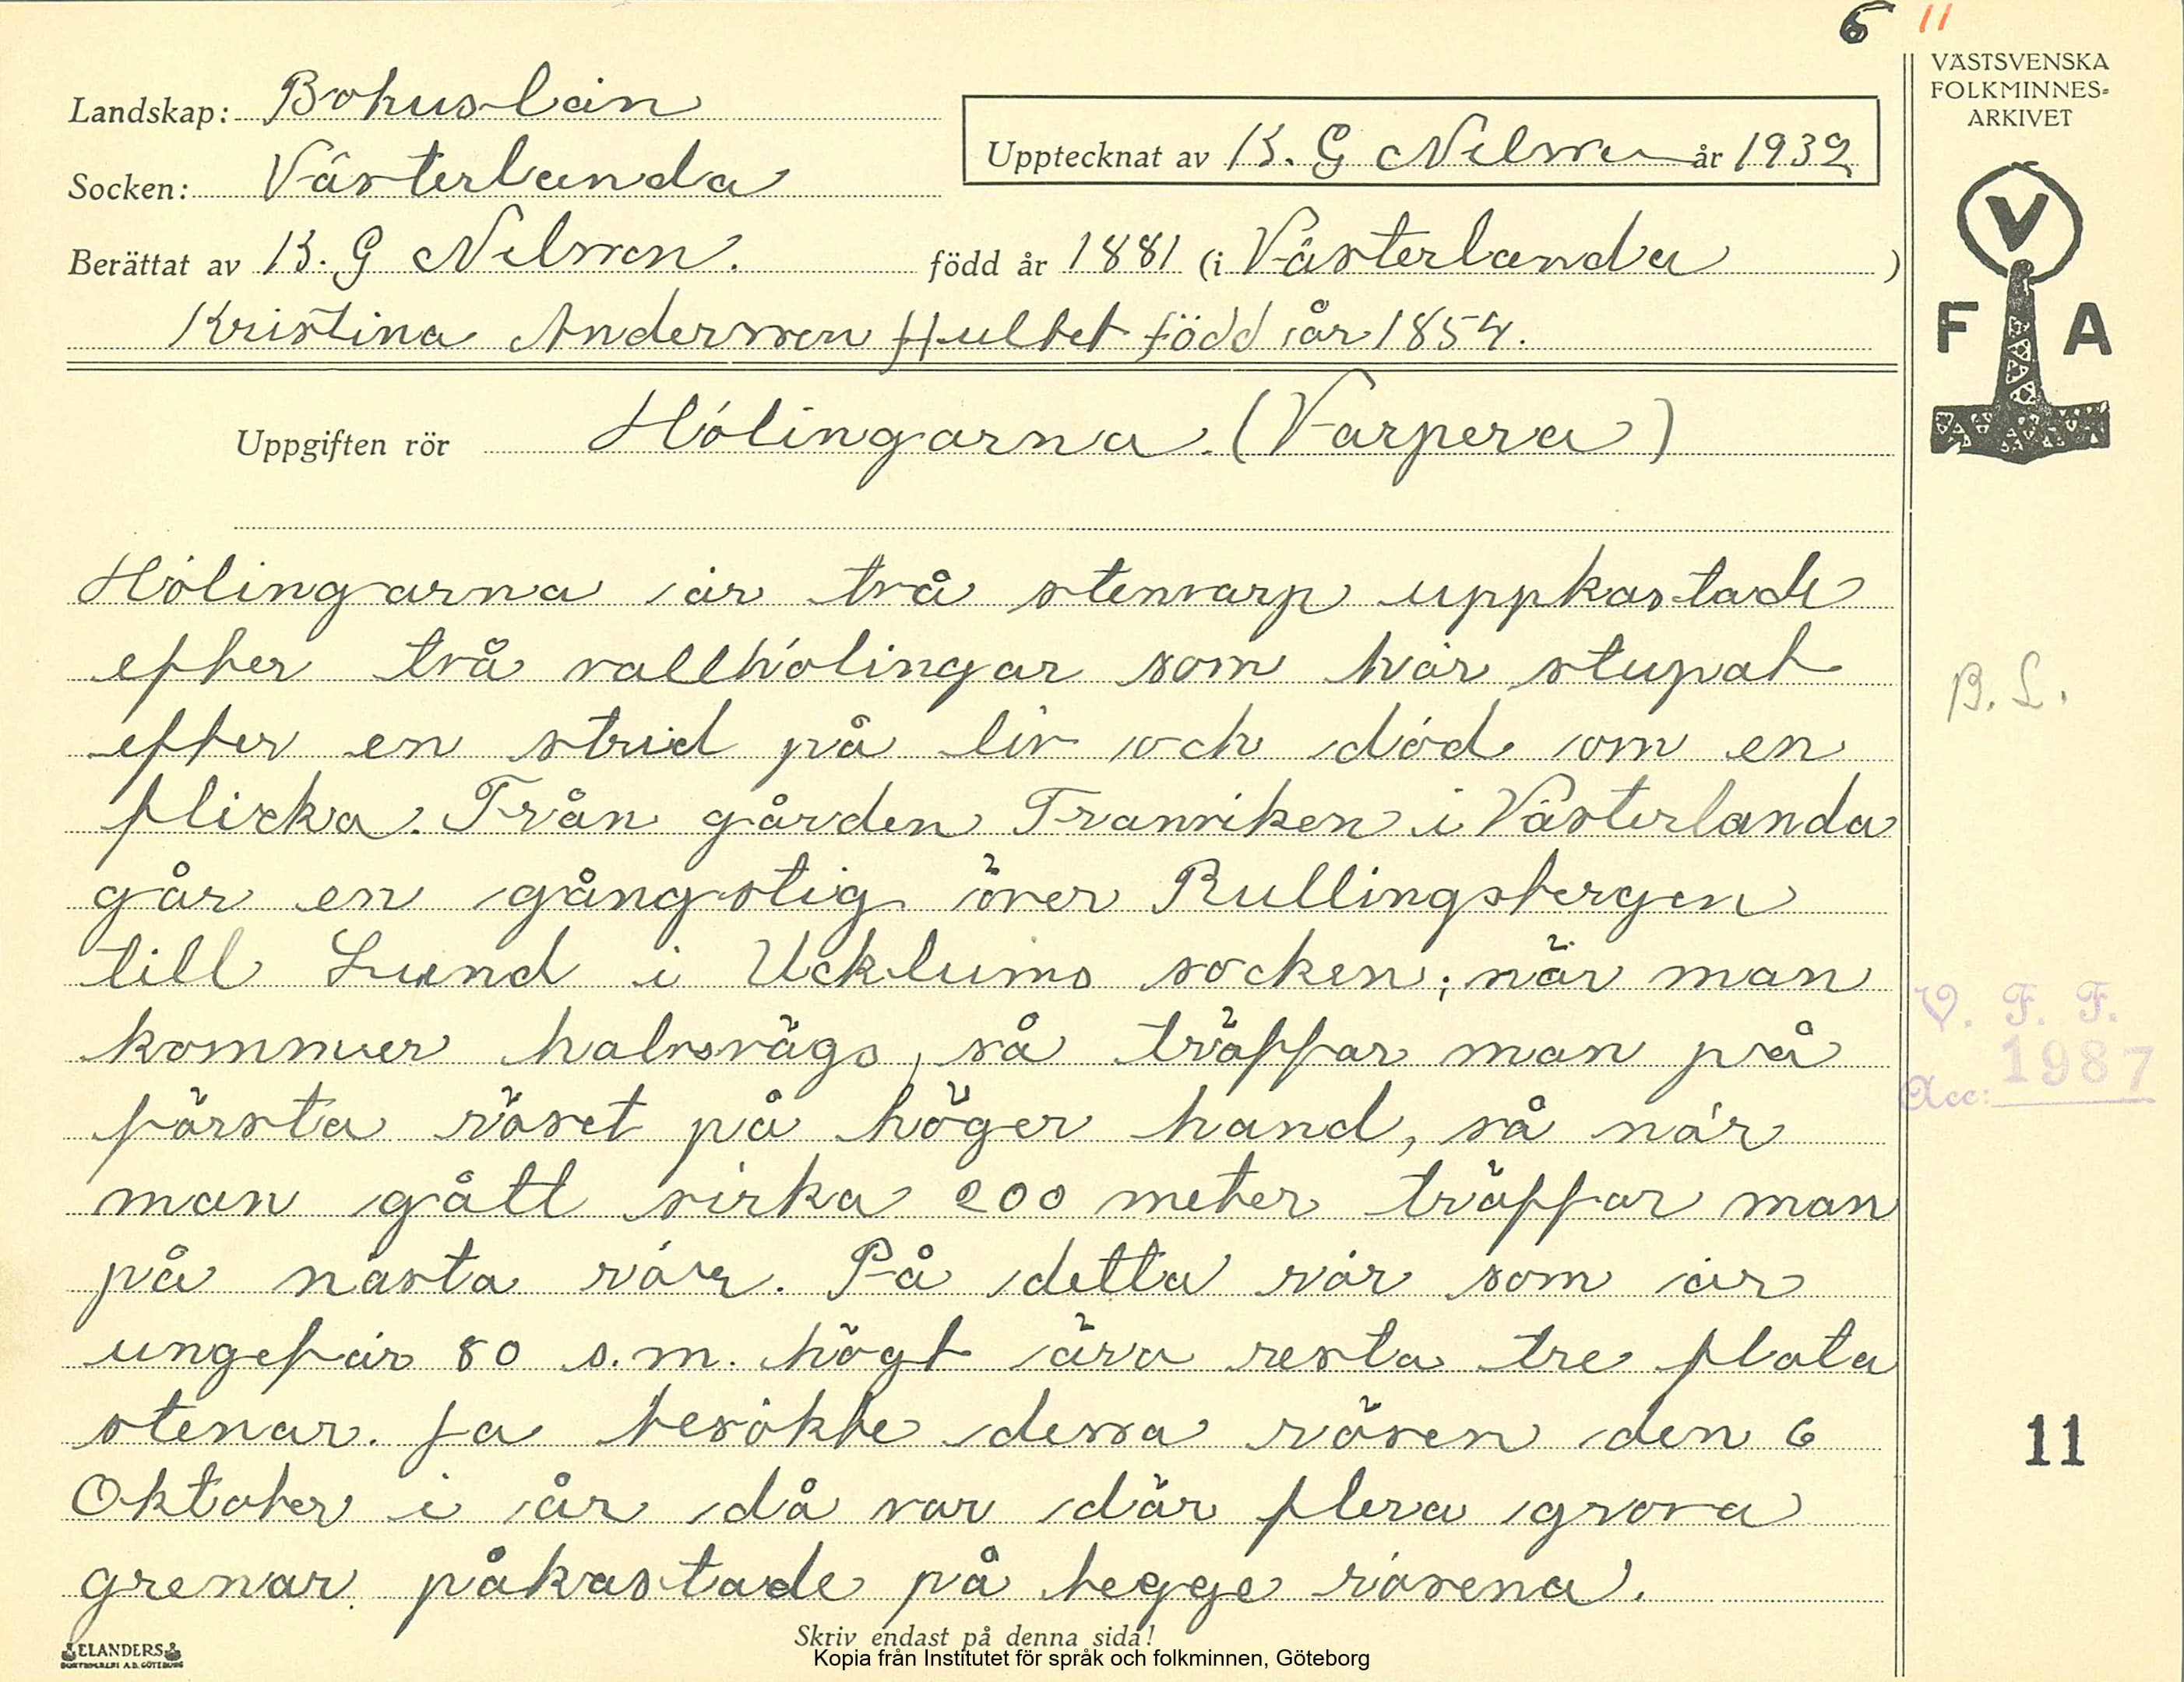 6 11
VÄSTSVENSKA
FOLKMINNES=
ARKIVET
Landskap: Bohuslän
Upptecknat av K. G Nilsson år 1932
Socken: Västerlanda
Berättat av K. G Nilsson. född år 1881 (i Västerlanda )
Kristina Andersson Hultet född år 1854.
V
F A
Uppgiften rör Hölingarna. (Varpera)
Hölingarna är två stenvarp uppkastade
efter två vallhölingar som här stupat
efter en strid på liv och död om en
flicka. Från gården Tranviken i Västerlanda
går en gångstig över Rullingsbergen
till Lund i Ucklums socken; när man
kommer halvsvägs, så träffar man på
första röset på höger hand, så när
man gått sirka 200 meter träffar man
på nästa rör. På detta rör som är
ungefär 80 s.m. högt ära resta tre flata
stenar. Ja besökte dessa rösen den 6
Oktober i år då var där flera grova
grenar påkastade på begge rösena.
B. L.
V. F. F.
Acc: 1987
11
ELANDERS
Skriv endast på denna sida!
Kopia från Institutet för språk och folkminnen, Göteborg